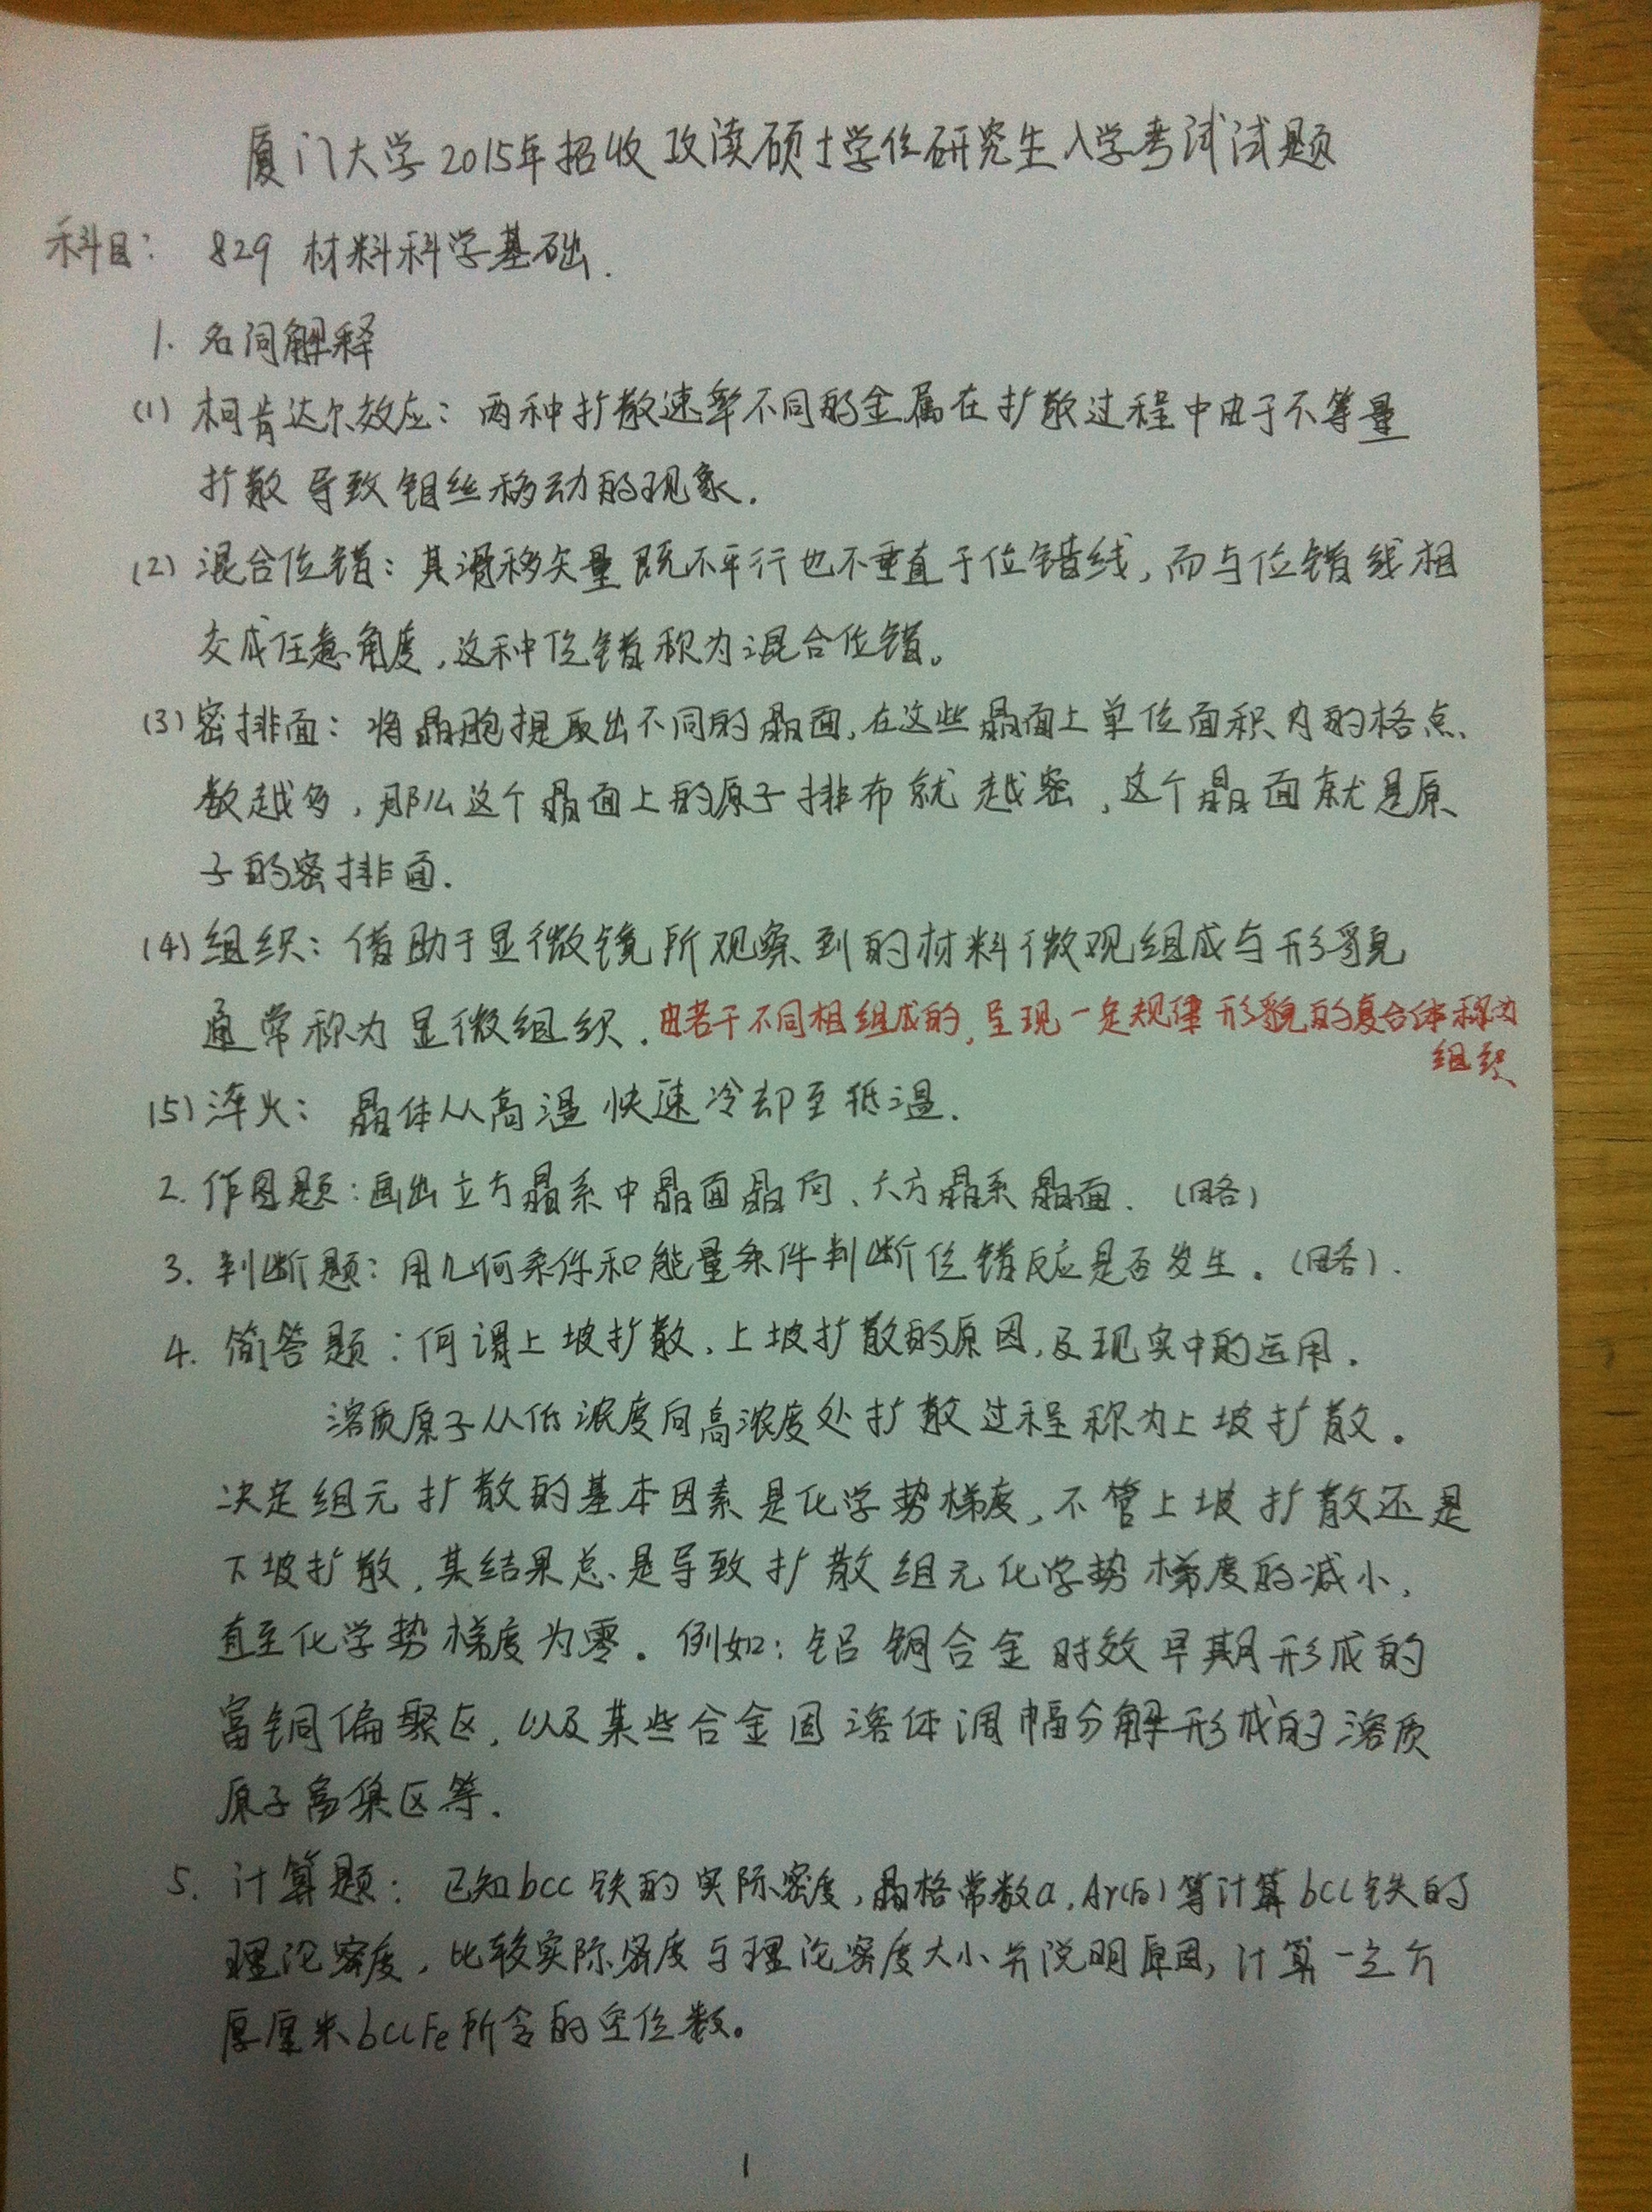 厦门大学2015年招收攻读硕士学位研究生入学考试试题
科目： 829 材料科学基础.
1. 名词解释
(1) 柯肯达尔效应：两种扩散速率不同的金属在扩散过程中由于不等量
扩散导致钼丝移动的现象.
(2) 混合位错：其滑移矢量既不平行也不垂直于位错线,而与位错线相
交成任意角度,这种位错称为混合位错。
(3) 密排面：将晶胞提取出不同的晶面,在这些晶面上单位面积内的格点
数越多,那么这个晶面上的原子排布就越密,这个晶面就是原
子的密排面.
(4) 组织：借助于显微镜所观察到的材料微观组成与形貌
通常称为显微组织. 由若干不同相组成的,呈现一定规律形貌的复合体称为
组织
(5) 淬火： 晶体从高温快速冷却至低温.
2. 作图题：画出立方晶系中晶面晶向、六方晶系晶面. (略)
3. 判断题：用几何条件和能量条件判断位错反应是否发生。(略).
4. 简答题：何谓上坡扩散,上坡扩散的原因,及现实中的运用.
溶质原子从低浓度向高浓度处扩散过程称为上坡扩散。
决定组元扩散的基本因素是化学势梯度,不管上坡扩散还是
下坡扩散,其结果总是导致扩散组元化学势梯度的减小,
直至化学势梯度为零。例如：铝铜合金时效早期形成的
富铜偏聚区,以及某些合金固溶体调幅分解形成的溶质
原子富集区等.
5. 计算题： 已知bcc铁的实际密度,晶格常数a,Ar(Fe)等计算bcc铁的
理论密度,比较实际密度与理论密度大小并说明原因,计算一立方
厚厘米bccFe所含的空位数。
1